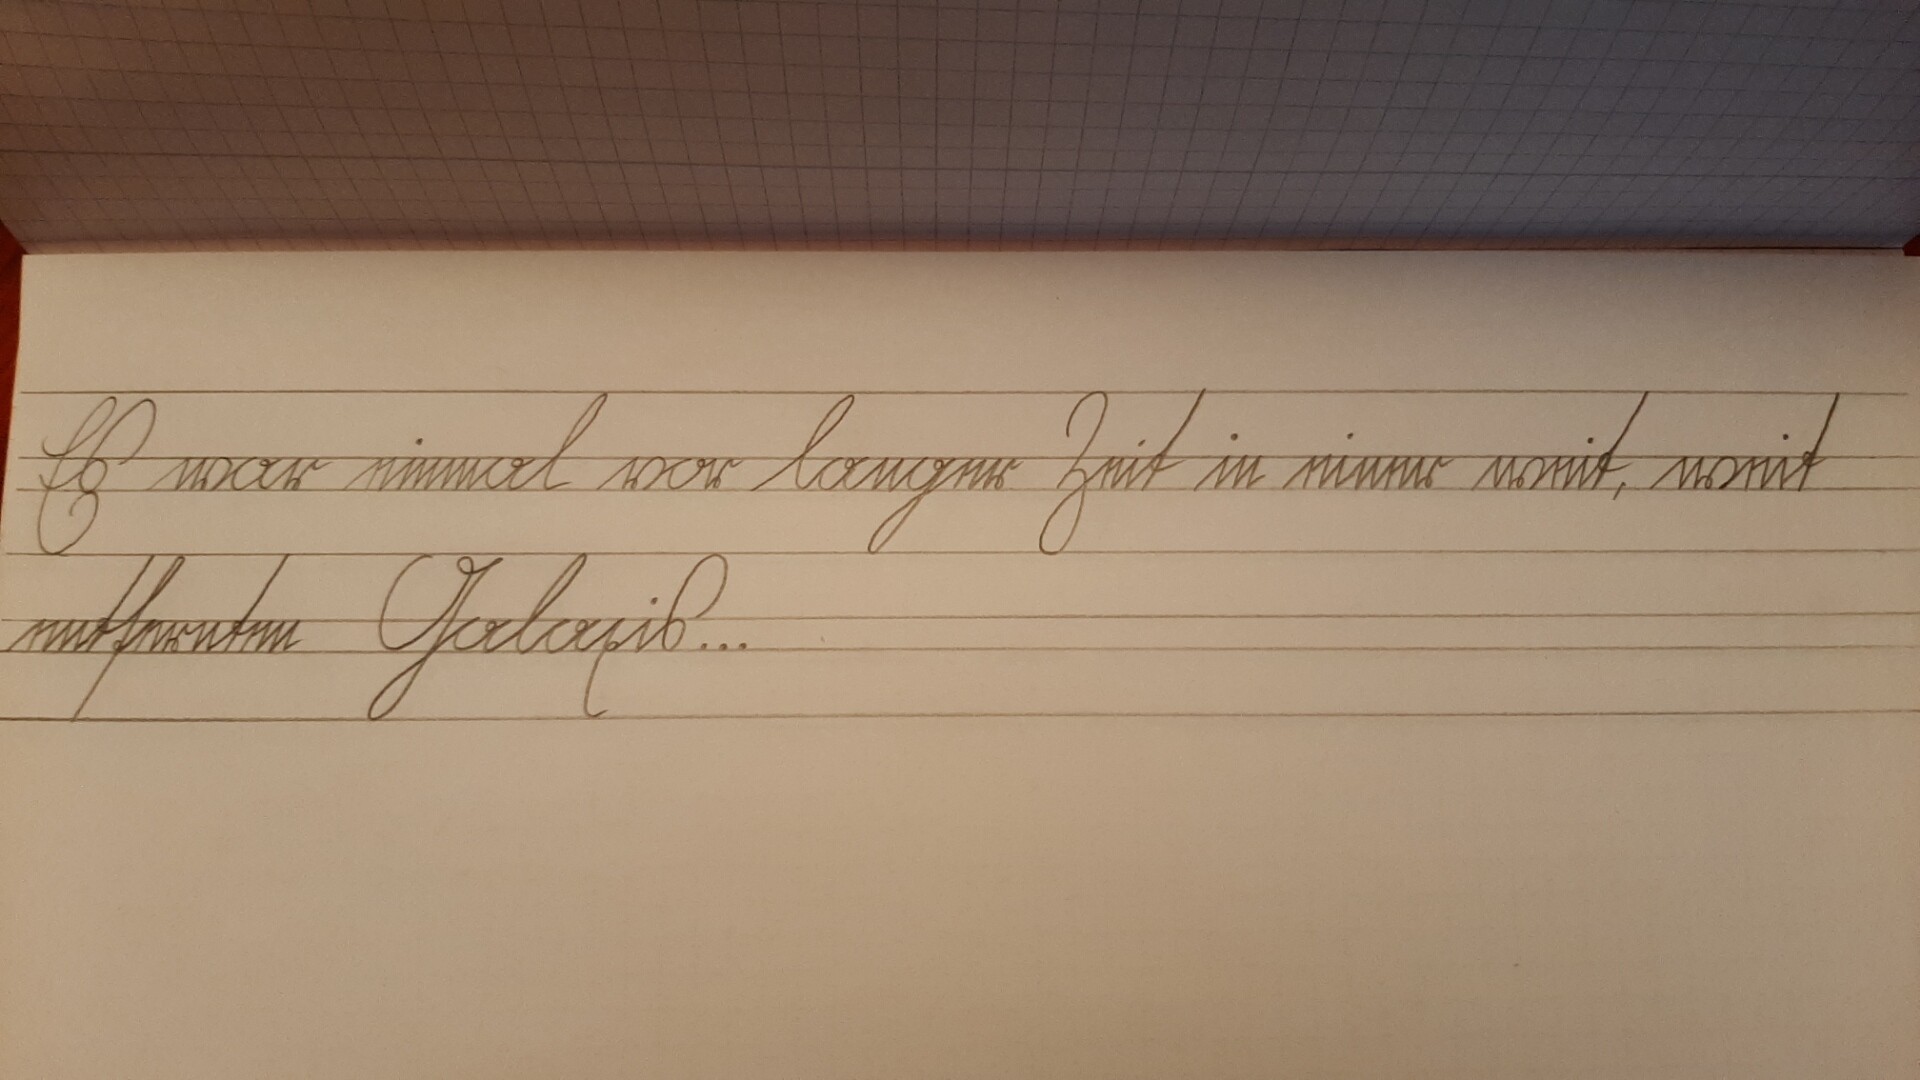 Es war einmal vor langer Zeit in einer weit, weit
entfernten Galaxis...